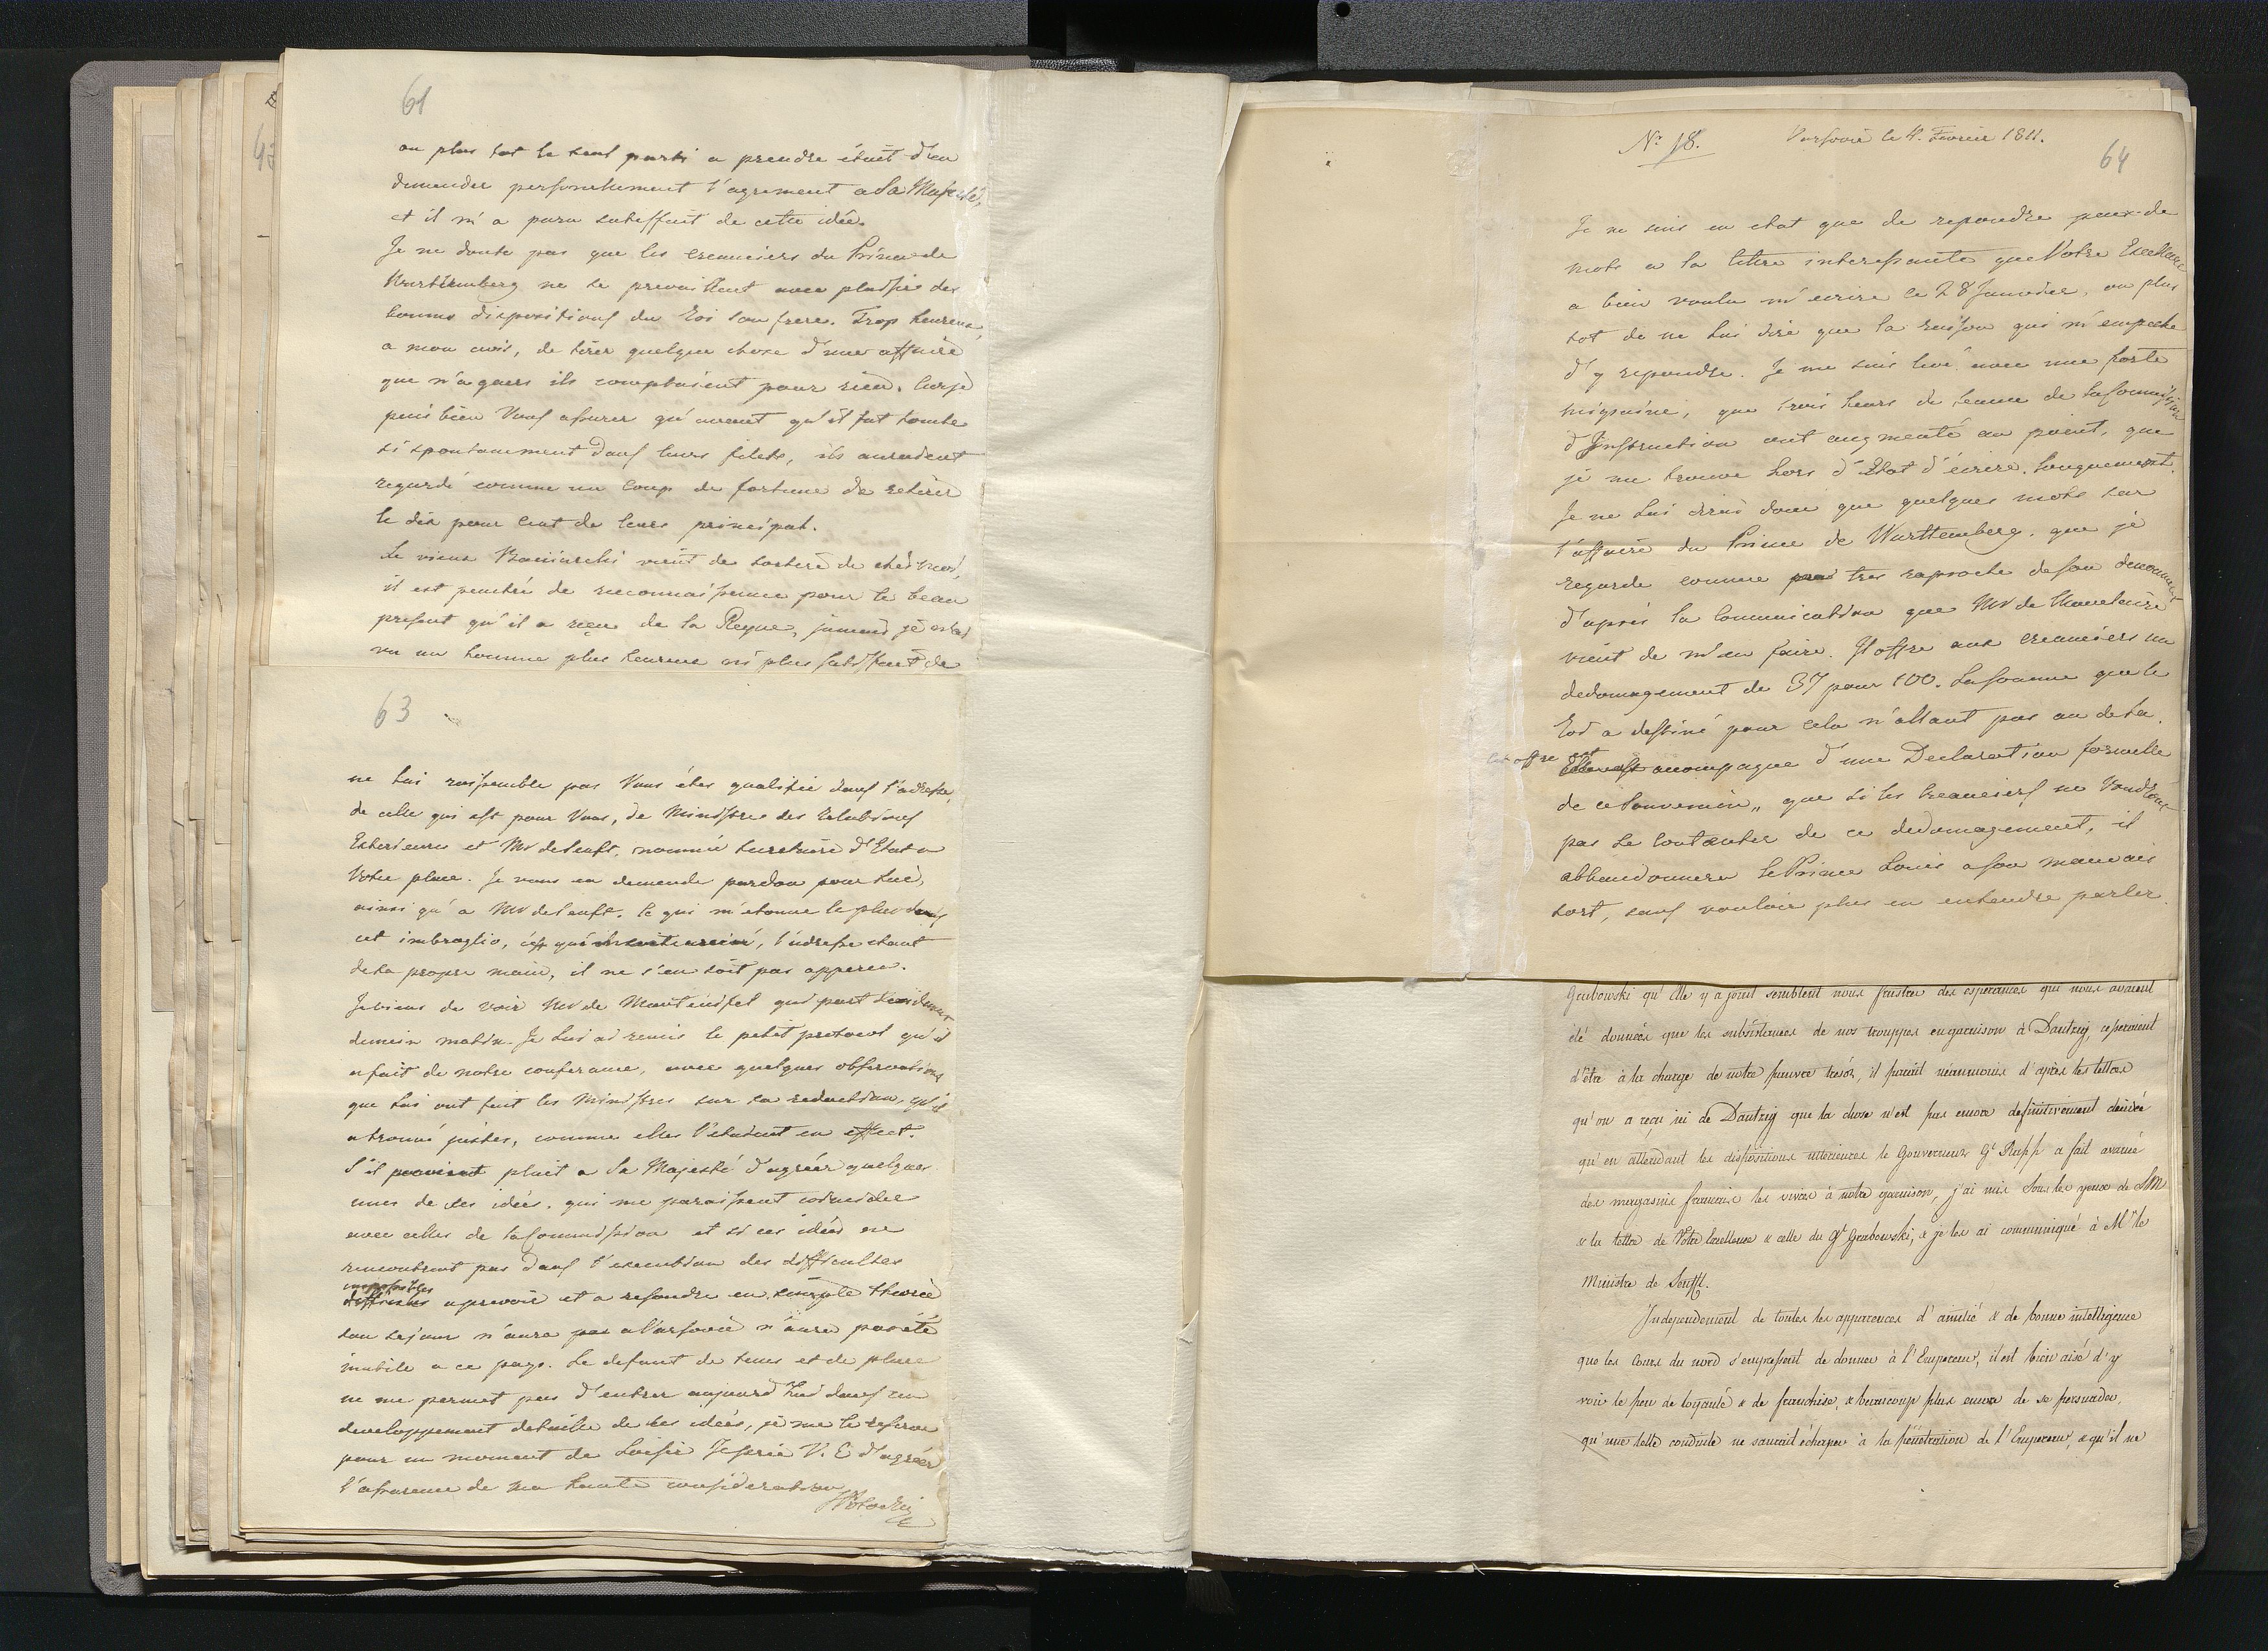 61
ou plus tot le seul parti a prendre étoit d'en
demender personelement l'agrement a Sa Majesté,
et il m'a paru satisffait de cette idée.
Je ne doute pas que les creanciers du Prince de
Wurttemberg ne se prevaillent avec plaisir des
bonnes dispositions du Roi son frere. Trop heureux,
a mon avis, de tirer quelque chose d'une affaire
que n'aguers ils comptoient pour rien. Car je
puis bien Vous assurer qu'avant qu'il fut tombé
si spontanement dans leurs filets, ils auroient
regardé comme un coup de fortune de retirer
le dix pour cent de leurs principal.
Le vieux vient de sortir de chés moi,
il est penetré de reconnoissance pour le beau
present qu'il a reçu de la Reyne, jamais je
vu un homme plus heureux ni plus satisffait de
63
ne lui ressemble pas Vous étes qualifié dans l'adresse,
de celle qui est pour Vous, de Ministre des Relations
Exterieures et Mr de Senft, nommé Secretaire d'Etat a
Votre place. Je vous en demende pardon pour lui,
ainsi qu'a Mr de Senft. Ce qui m'etonne le plus dans
cet imbroglio, c'est que l'adresse etant
de sa propre main, il ne s'en soit pas apperçu.
Je viens de voir Mr de Manteuffel qui part
demain matin. Je lui ai remis le petit protocol qu'il
a fait de notre conferance, avec quelques observations
que lui ont fait les Ministres sur sa redaction, qu'il
a trouvé justes, comme elles l'etoient en effect.
S'il plait a Sa Majesté d'agréer quelques
unes de ses idées, qui me paroissent coincider
avec celles de la Commission et si ces idées ne
rencontrent pas dans l'execution des difficultes
impossibles
difficiles a prevoir et a resoudre en simple theorie
son sejour n'aura pas a Varsovie n'aura pas été
inutile a ce pays. Le defaut de tems et de place
ne me permet pas d'entrer aujourd'hui dans un
developpement detaillé de ses idées, je me le reserve
pour un moment de loisir Je prie V. E d'agréer
l'assurance de ma haute consideration
Nr 18. Varsovie le 4. Fevrier 1811.
64
Je ne suis en etat que de repondre peux de
mots a la lettre interessante que Votre Excellence
a bien voulu m'ecrire le 28 Janvier, ou plus
tot de ne lui dire que la raison qui m'empeche
d'y repondre. Je me suis levé avec une forte
migraine, que trois heurs de seance de la Commission
d'Instruction ont augmenté au point, que
je me trouve hors d'Etat d'écrire longuement.
Je ne lui dirai donc que quelques mots sur
l'affaire du Prince de Wurttemberg. que je
regarde comme tres raproché de son denouement
d'après la communication que Mr de
vient de m'en faire. Il offre aux creanciers un
dedomagement de 37 pour 100. La somme que le
Roi a destiné pour cela n'allant pas au dela.
Cet offre est
accompagné d'une Declaration formelle
de ce Souverain, que si les Creanciers ne Voudront
pas se contanter de ce dedomagement, il
abbandonnera le Prince Louis a son mauvais
sort, sans vouloir plus en entendre parler.
Grabowski qu'Elle y a joint semblent nous frustrer des esperances qui nous avaient
été données que les subsistances de nos trouppes en garnison à Dantzig, cesseroient
d'être à la charge de notre pauvre tresor, il parait néanmoins d'après les lettres
qu'on a reçu ici de Dantzig que la chose n'est pas encore definitivement decidée
qu'en attendant les dispositions ulterieures le Gouverneur Gl Rapp a fait avancé
des magasins francais les vivres à notre garnison, j'ai mis sous les yeux de SM
& la lettre de Votre Excellence & celle du Gl Grabowski, & je les ai communiqué à Mr le
Ministre de Senfft.
Independement de toutes les apparences d'amitié & de bonne intelligence
que les Cours du nord s'empressent de donner à l'Empereur, il est bien aisé d'y
voir le peu de loyauté & de franchise, & beaucoup plus encore de se persuader,
qu'une telle conduite ne saurait échaper à la penetration de l'Empereur, & qu'il ne